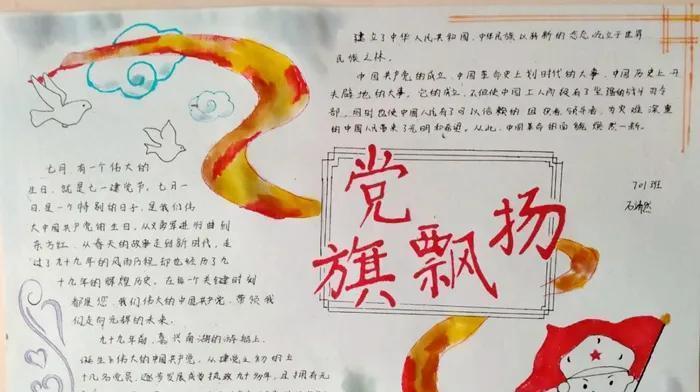 建立了中华人民共和国，中华民族以崭新的姿态屹立于世界
民族之林。
中国共产党的成立，中国革命史上划时代的大事，中国历史上开
天辟地的大事。它的成立，不但使中国工人阶级有了坚强的战斗司令
部，同时也使中国人民有了可以信赖的组织者领导者，为灾难深重
的中国人民带来了光明和希望。从此，中国革命的面貌焕然一新。
701班
党
旗飘扬
七月有一个伟大的
生日，就是七一建党节，七月一
日是一个特别的日子，是我们伟
大中国共产党的生日，从义勇军进行曲到
东方红，从春天的故事走向新时代，走
过了九十九年的风雨历程却也经历了九
十九年的辉煌历史，在每一个关键时刻
都是您，我们伟大的中国共产党，带领我
们走向光辉的未来。
九十九年前，嘉兴南湖的游船上，
诞生了伟大的中国共产党，从建党之初的上
十几名党员，逐步发展成曾执政九十多年，且拥有元